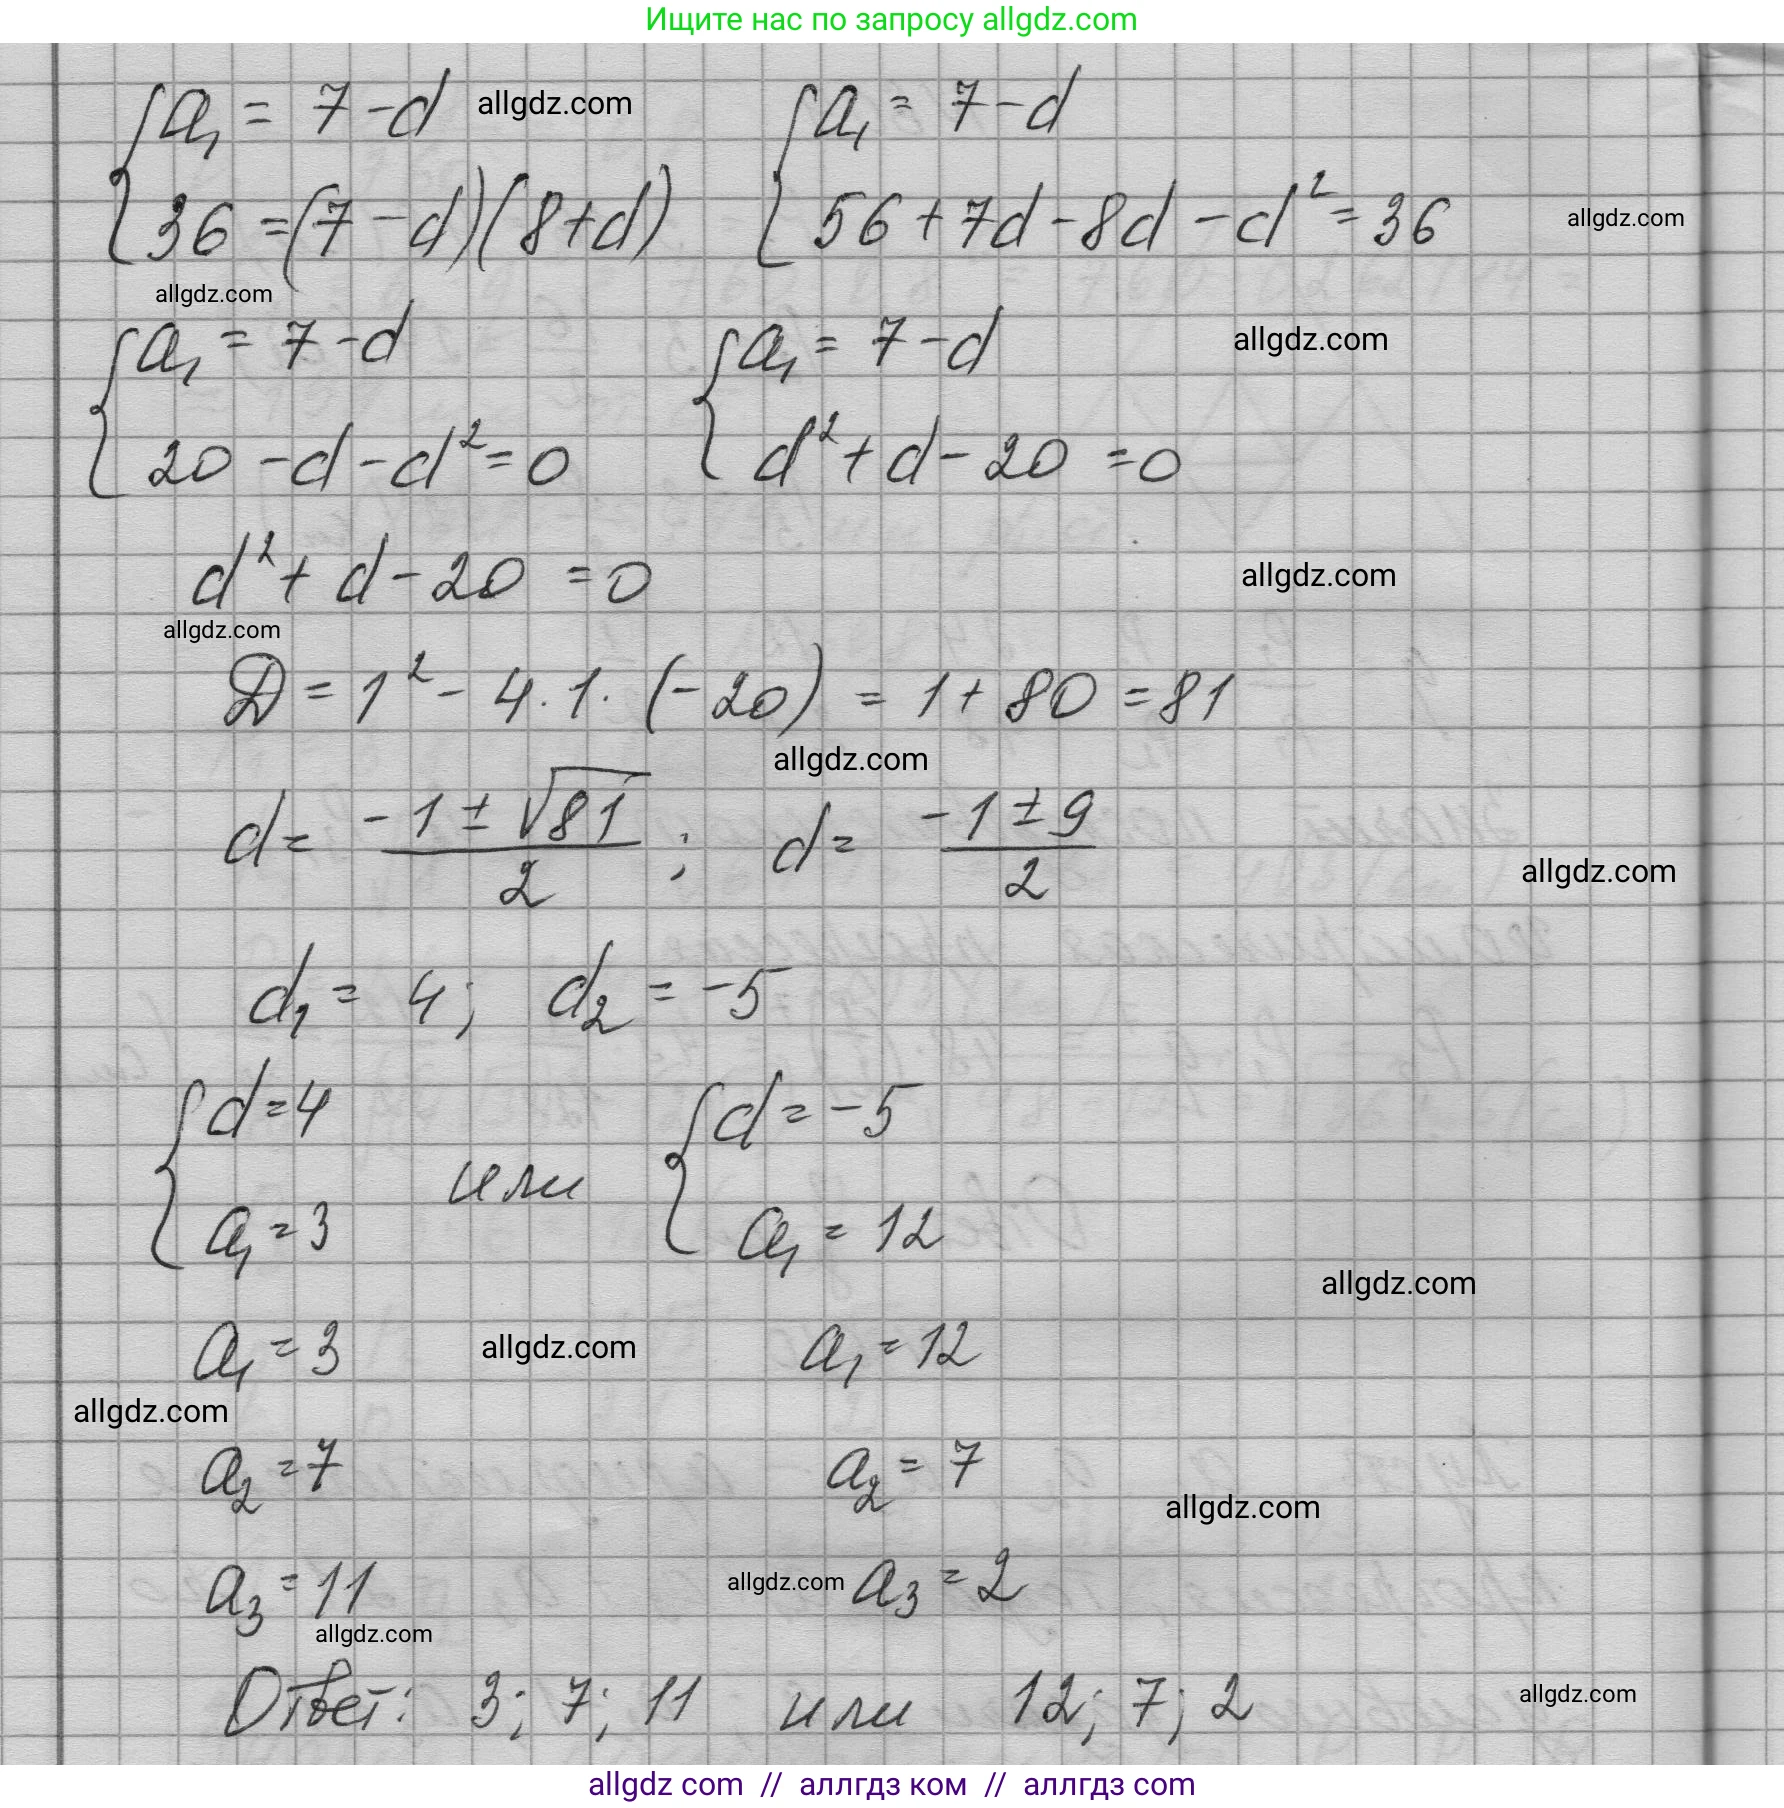 Ищите нас по запросу allgdz.com
{a₁ = 7 - d allgdz.com {a₁ = 7 - d
36 = (7 - d)(8 + d) 56 + 7d - 8d - d² = 36 allgdz.com
allgdz.com
{a₁ = 7 - d {a₁ = 7 - d allgdz.com
20 - d - d² = 0 d² + d - 20 = 0
d² + d - 20 = 0 allgdz.com
allgdz.com
D = 1² - 4 · 1 · (-20) = 1 + 80 = 81
allgdz.com
d = (-1 ± √81)/2 ; d = (-1 ± 9)/2 allgdz.com
d₁ = 4; d₂ = -5
{d = 4 {d = -5
или
a₁ = 3 a₁ = 12
allgdz.com
a₁ = 3 allgdz.com a₁ = 12
allgdz.com
a₂ = 7 a₂ = 7
allgdz.com
a₃ = 11 allgdz.com a₃ = 2
allgdz.com
Ответ: 3; 7; 11 или 12; 7; 2 allgdz.com
allgdz com // аллгдз ком // аллгдз com